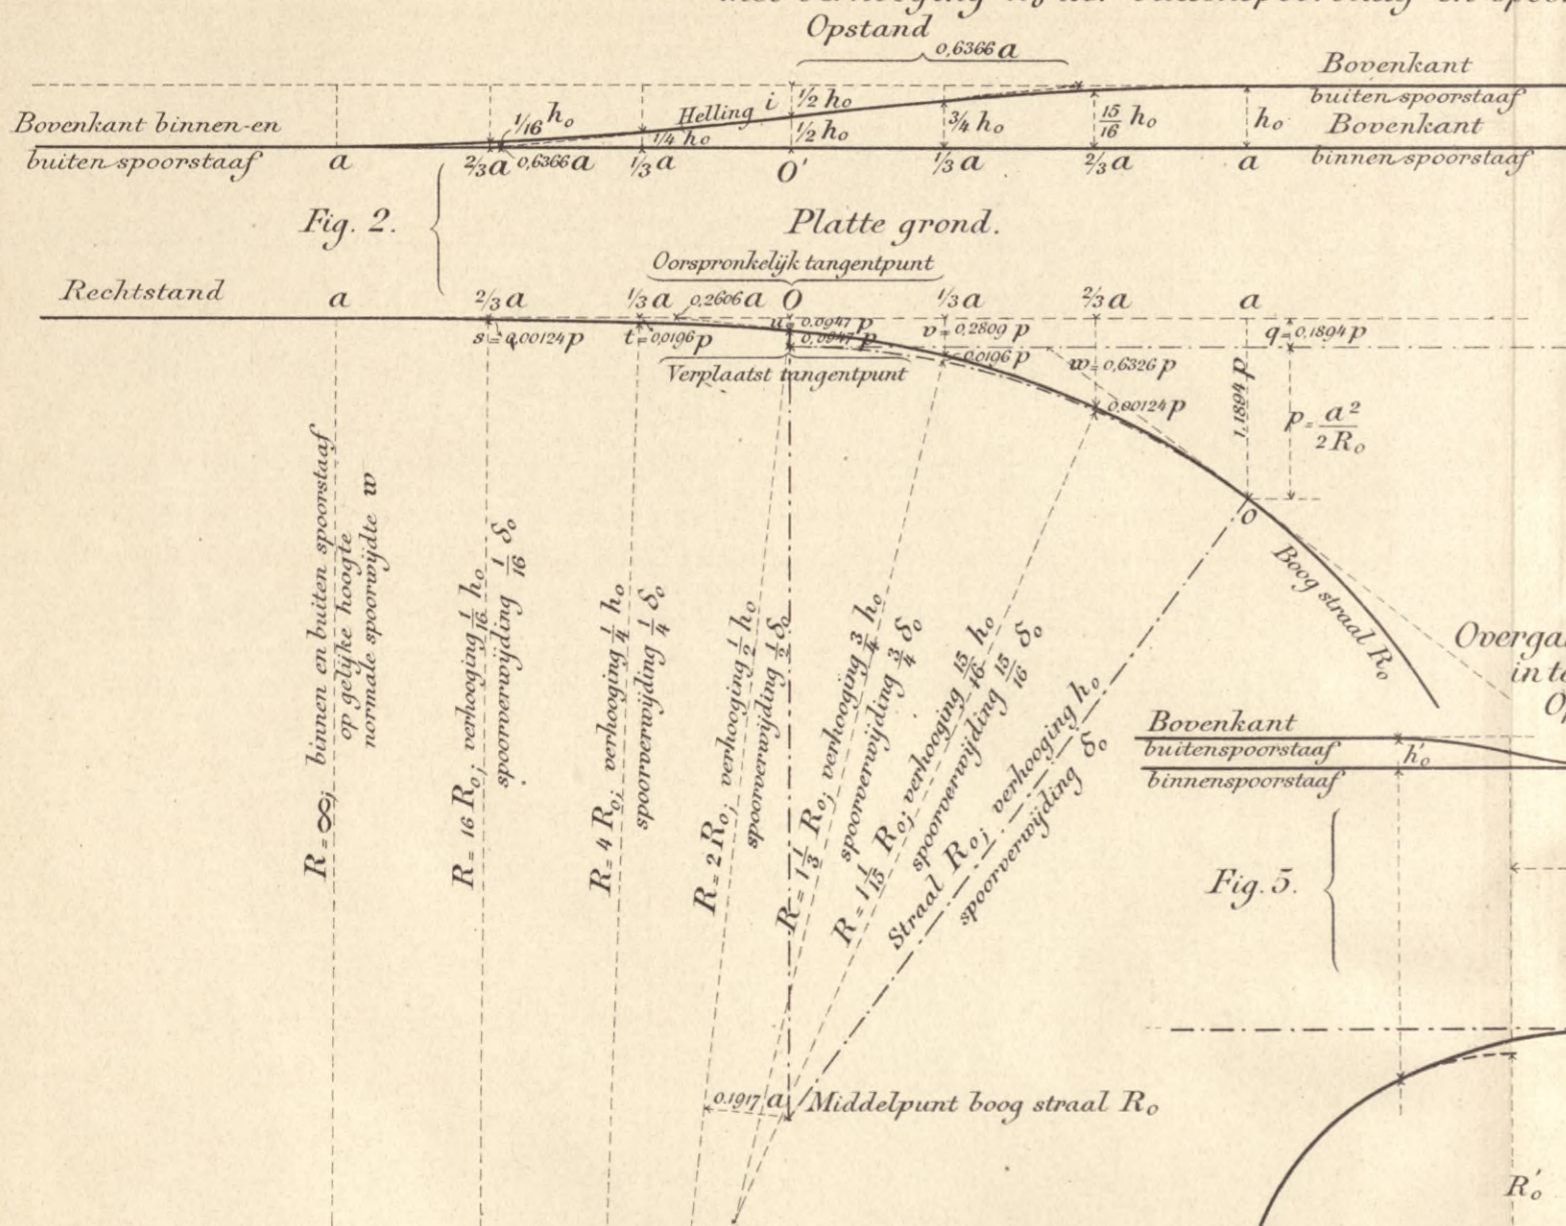 Opstand
0,6366 a
Bovenkant
buiten spoorstaaf
Bovenkant
binnen spoorstaaf
Bovenkant binnen-en
buiten spoorstaaf
1/16 ho
Helling i
1/4 ho
1/2 ho
1/2 ho
3/4 ho
15/16 ho
ho
a
2/3 a
0,6366 a
1/3 a
O'
1/3 a
2/3 a
a
Fig. 2.
Platte grond.
Oorspronkelijk tangentpunt
Rechtstand
a
2/3 a
1/3 a
0,2606 a
O
1/3 a
2/3 a
a
s = 0,00124 p
t = 0,0196 p
u = 0,0947 p
0,0947 p
v = 0,2809 p
0,0196 p
w = 0,6326 p
0,00124 p
q = 0,1894 p
1,1894 p
p = a²/2Ro
Verplaatst tangentpunt
O
Boog straal Ro
R = ∞; binnen en buiten spoorstaaf
op gelijke hoogte
normale spoorwijdte w
R = 16 Ro; verhooging 1/16 ho
spoorverwijding 1/16 δo
R = 4 Ro; verhooging 1/4 ho
spoorverwijding 1/4 δo
R = 2 Ro; verhooging 1/2 ho
spoorverwijding 1/2 δo
R = 1 1/3 Ro; verhooging 3/4 ho
spoorverwijding 3/4 δo
R = 1 1/15 Ro; verhooging 15/16 ho
spoorverwijding 15/16 δo
Straal Ro; verhooging ho
spoorverwijding δo
0,1917 a
Middelpunt boog straal Ro
Bovenkant
buitenspoorstaaf
binnenspoorstaaf
h'o
Fig. 5.
R'o